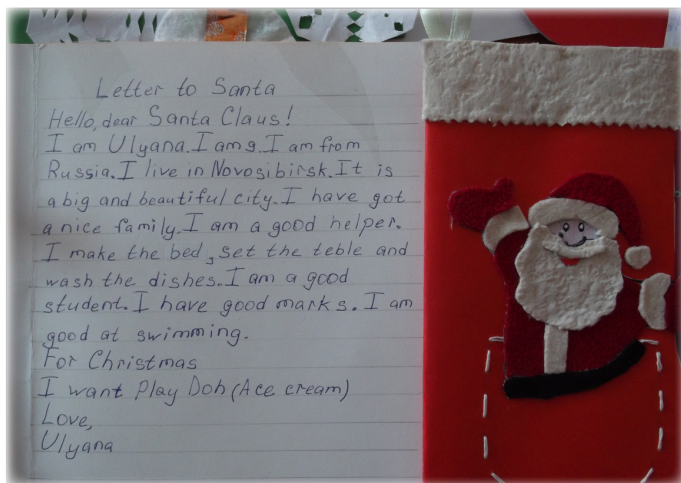 Letter to Santa
Hello, dear Santa Claus!
I am Ulyana. I am 9. I am from
Russia. I live in Novosibirsk. It is
a big and beautiful city. I have got
a nice family. I am a good helper.
I make the bed, set the teble and
wash the dishes. I am a good
student. I have good marks. I am
good at swimming.
For Christmas
I want Play Doh (Ace cream)
Love,
Ulyana